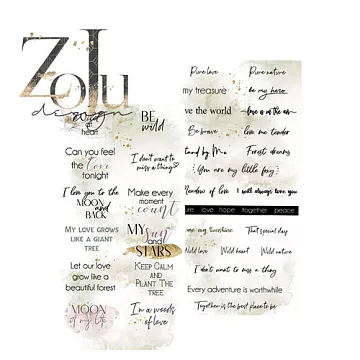 ZoJu
design
at
heart
BE
wild
Can you feel
the love
tonight
I don't want to
miss a thing
I love you to the
MOON
and
BACK
Make every
moment
count
MY LOVE GROWS
LIKE A GIANT
TREE
MY sun
and
STARS
Let our love
grow like a
beautiful forest
KEEP CALM
AND
PLANT THE
TREE
MOON
of my life
I'm a weeds
of love
Pure love
Pure nature
my treasure
be my hero
love the world
love is in the air
Be brave
love me tender
Stand by Me
Forest dreams
You are my little fairy
Meadow of love
I will always love you
love hope together peace
Wild love
Special day
Wild love
Wild heart
Wild nature
I don't want to miss a thing
Every adventure is worthwhile
Together is the best place to be